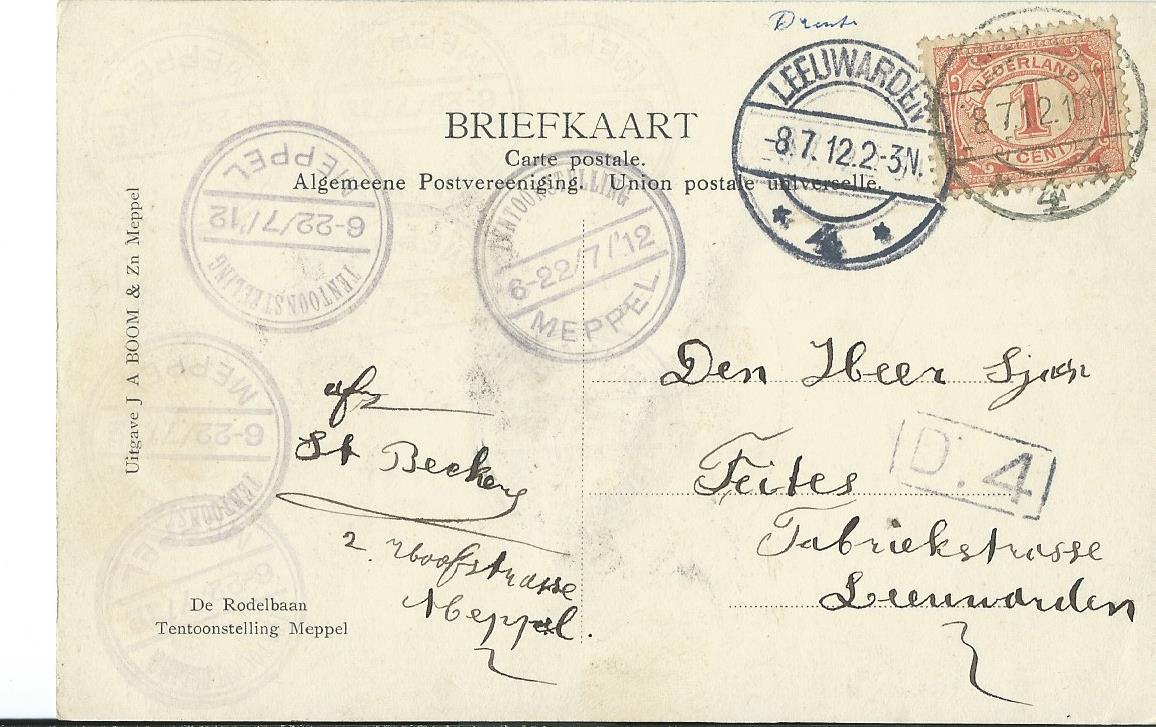 Drente
BRIEFKAART
Carte postale.
Algemeene Postvereeniging. Union postale universelle.
LEEUWARDEN
-8.7.12.2-3N.
4
NEDERLAND
1
CENT
4
TENTOONSTELLING
6-22/7/'12
MEPPEL
MEPPEL
6-22/7/'12
TENTOONSTELLING
MEPPEL
6-22/7/'12
Uitgave J A BOOM & Zn Meppel
Den Heer Sjoer
Feites
D. 4
Fabriekstrasse
Leeuwarden
afz
St Beekens
2. Hoofstrasse
Meppel.
De Rodelbaan
Tentoonstelling Meppel